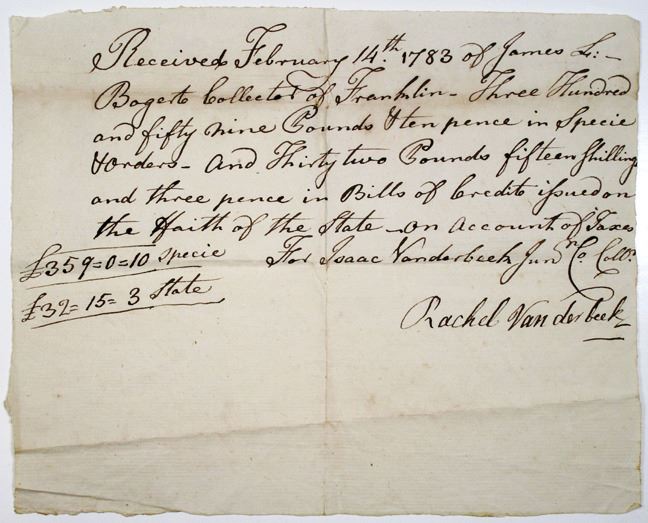 Received February 14.th 1783 of James L:-
Bogert Collector of Franklin - Three Hundred
and fifty nine Pounds & ten pence in Specie
& orders - And Thirty two Pounds fifteen Shillings
and three pence in Bills of Credit issued on
the Faith of the State - on Account of Taxes
£359=0=10 Specie
For Isaac Vanderbeek Junr Co. Collr.
£32=15=3 State
Rachel Vanderbeek